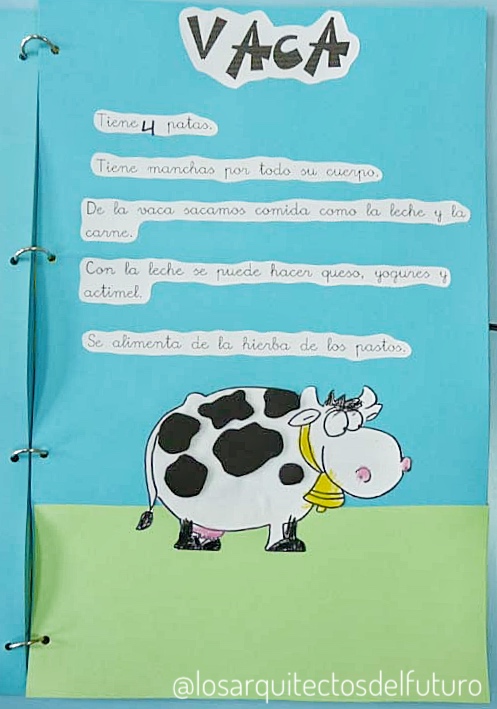 VACA
Tiene 4 patas.
Tiene manchas por todo su cuerpo.
De la vaca sacamos comida como la leche y la
carne.
Con la leche se puede hacer queso, yogures y
actimel.
Se alimenta de la hierba de los pastos.
@losarquitectosdelfuturo